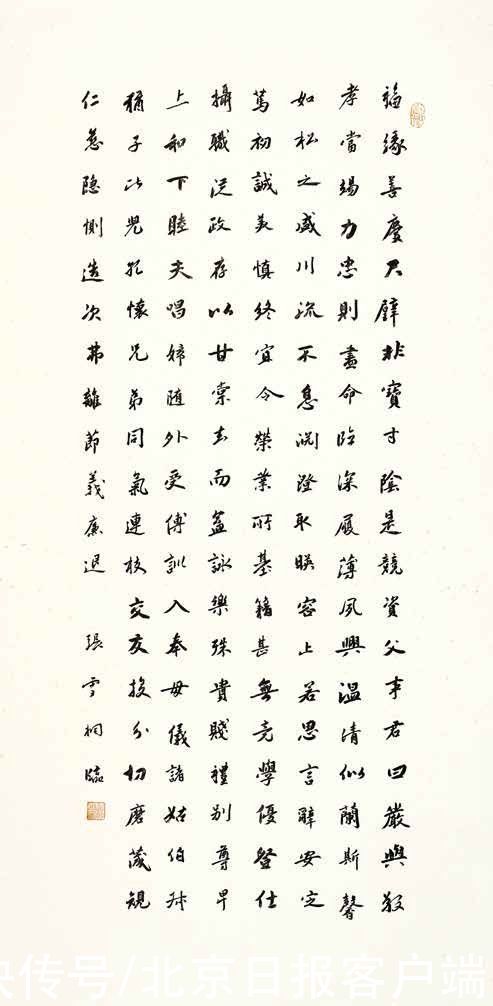 福緣善慶尺璧非寶寸陰是競資父事君曰嚴與敬
孝當竭力忠則盡命臨深履薄夙興溫清似蘭斯馨
如松之盛川流不息淵澄取暎容止若思言辭安定
篤初誠美慎終宜令榮業所基籍甚無竟學優登仕
攝職從政存以甘棠去而益詠樂殊貴賤禮別尊卑
上和下睦夫唱婦随外受傅訓入奉母儀諸姑伯叔
猶子比兒孔懷兄弟同氣連枝交友投分切磨箴規
仁慈隐惻造次弗離節義廉退 張雪桐臨
快传号/北京日报客户端